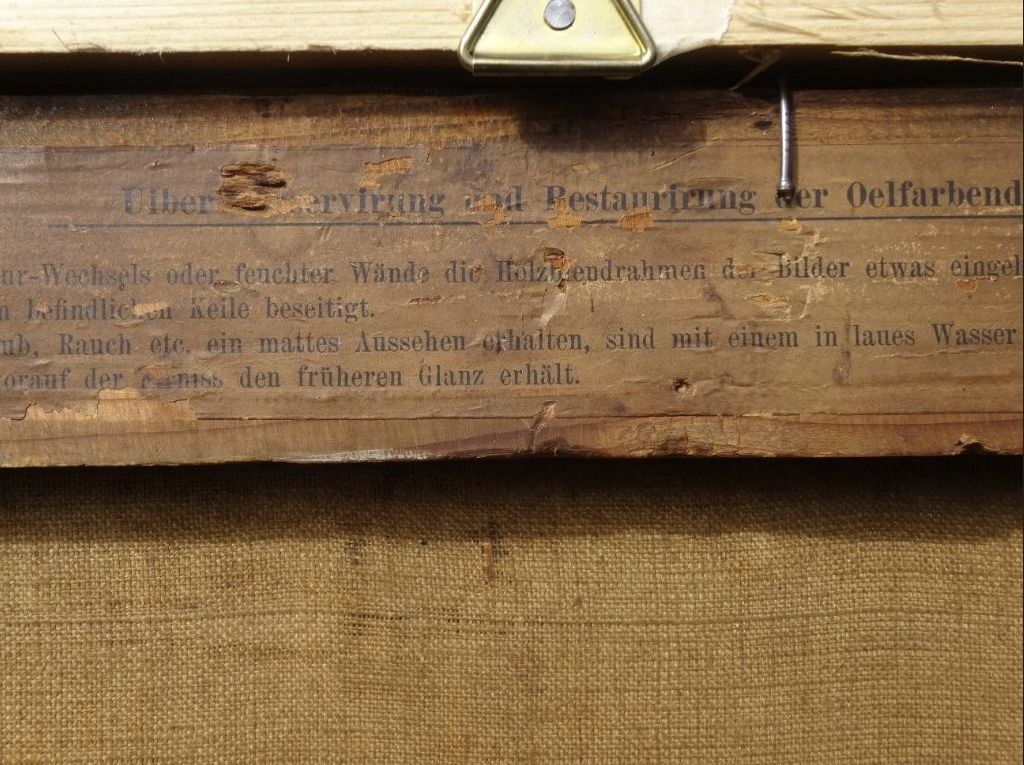 Uiber servirung und Restaurirung der Oelfarbend
ur-Wechsels oder feuchter Wände die Holzblendrahmen der Bilder etwas eingeh
n befindlichen Keile beseitigt.
ub, Rauch etc. ein mattes Aussehen erhalten, sind mit einem in laues Wasser
orauf der Firniss den früheren Glanz erhält.